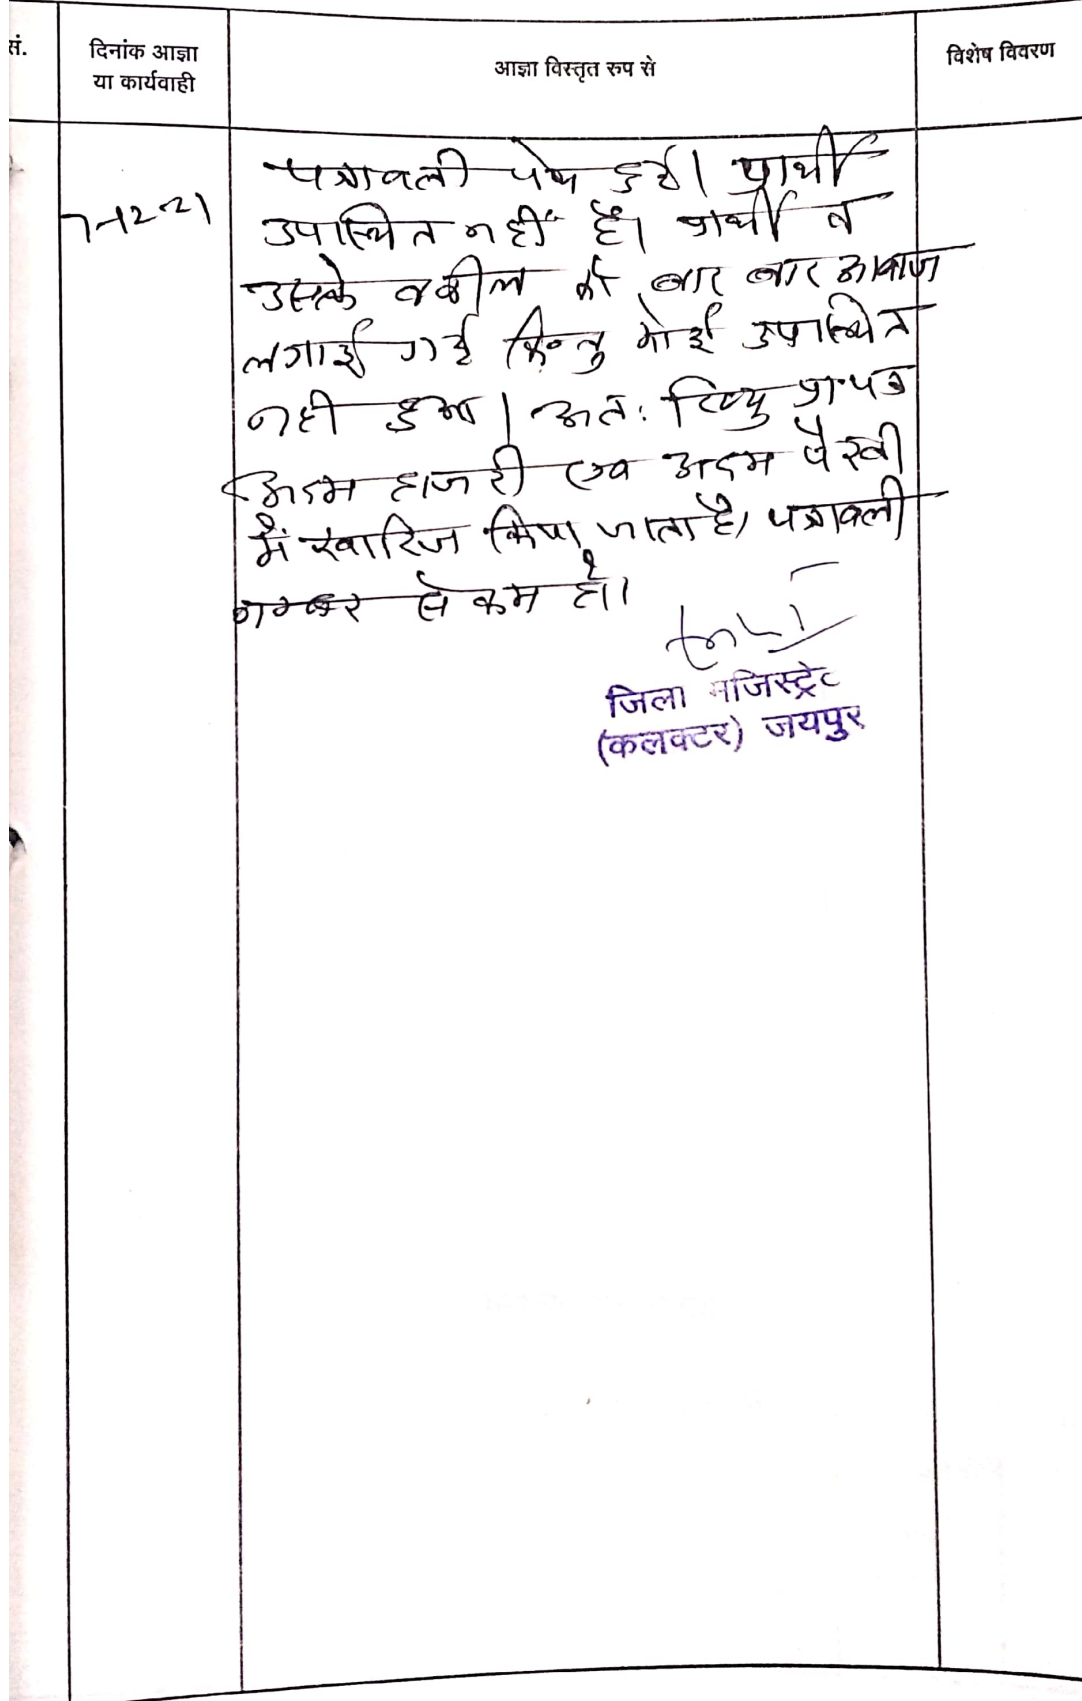 सं.
दिनांक आज्ञा
या कार्यवाही
आज्ञा विस्तृत रुप से
विशेष विवरण
7-12-21
पत्रावली पेश हुई। प्रार्थी
उपस्थित नहीं है। प्रार्थी व
उसके वकील को बार बार आवाज
लगाई गई किन्तु कोई उपस्थित
नही हुआ। अतः रिव्यु प्रा.पत्र
अदम हाजरी एव अदम पैरवी
में खारिज किया जाता है। पत्रावली
नम्बर से कम हो।
जिला मजिस्ट्रेट
(कलक्टर) जयपुर